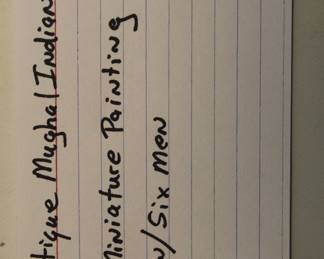 tique Mughal Indian
Miniature Painting
w/ Six Men